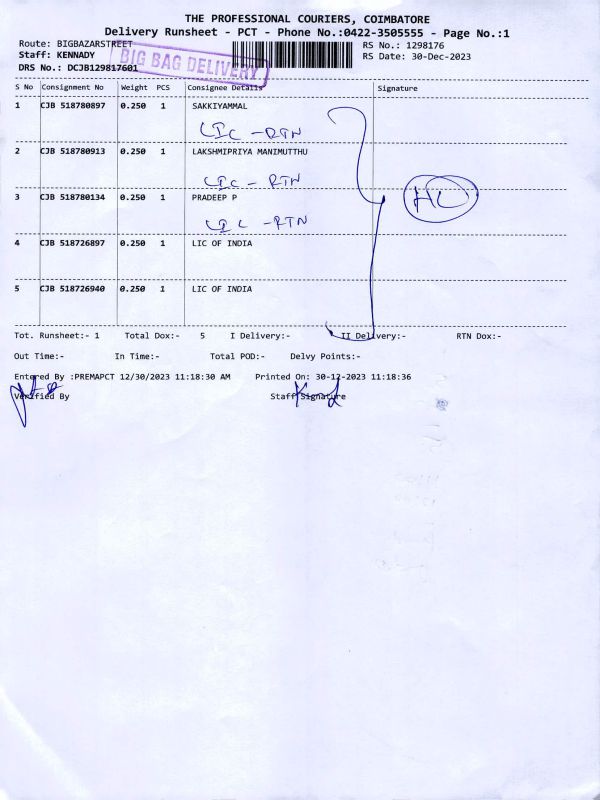 THE PROFESSIONAL COURIERS, COIMBATORE
Delivery Runsheet - PCT - Phone No.:0422-3505555 - Page No.:1
Route: BIGBAZARSTREET RS No.: 1298176
Staff: KENNADY RS Date: 30-Dec-2023
BIG BAG DELIVERY
DRS No.: DCJB129817601
S No Consignment No Weight PCS Consignee Details Signature
1 CJB 518780897 0.250 1 SAKKIYAMMAL
LIC - RTN
2 CJB 518780913 0.250 1 LAKSHMIPRIYA MANIMUTTHU
LIC - RTN
3 CJB 518780134 0.250 1 PRADEEP P
LIC - RTN
4 CJB 518726897 0.250 1 LIC OF INDIA
5 CJB 518726940 0.250 1 LIC OF INDIA
Tot. Runsheet:- 1 Total Dox:- 5 I Delivery:- II Delivery:- RTN Dox:-
Out Time:- In Time:- Total POD:- Delvy Points:-
Entered By :PREMAPCT 12/30/2023 11:18:30 AM Printed On: 30-12-2023 11:18:36
Verified By Staff Signature